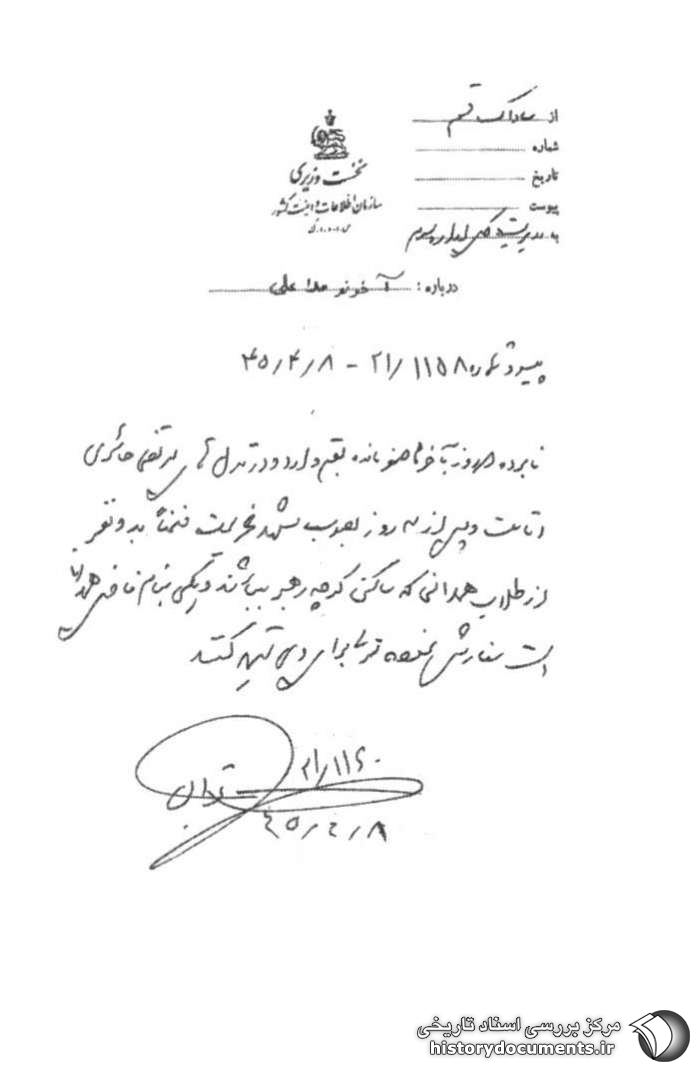 از ساواک قم
شماره
تاریخ
پیوست
به مدیریت کل اداره سوم
نخست وزیری
سازمان اطلاعات و امنیت کشور
س.ا.و.ا.ک
درباره : آخوند ملا علی
پیرو شماره ۲۱/۱۱۵۸ - ۴۵/۴/۸
نامبرده روز وارد و در منزل مرتضی حائری
اقامت و پس از سه روز بصوب مشهد عزیمت ضمناً به دو نفر
از طلاب همدانی که ساکن کوچه رهبر میباشند و یکی بنام فاضل همدانی
است سفارش نموده برای وی تهیه کنند
۲۱/۱۱۶۰
۴۵/۴/۸
مرکز بررسی اسناد تاریخی
historydocuments.ir